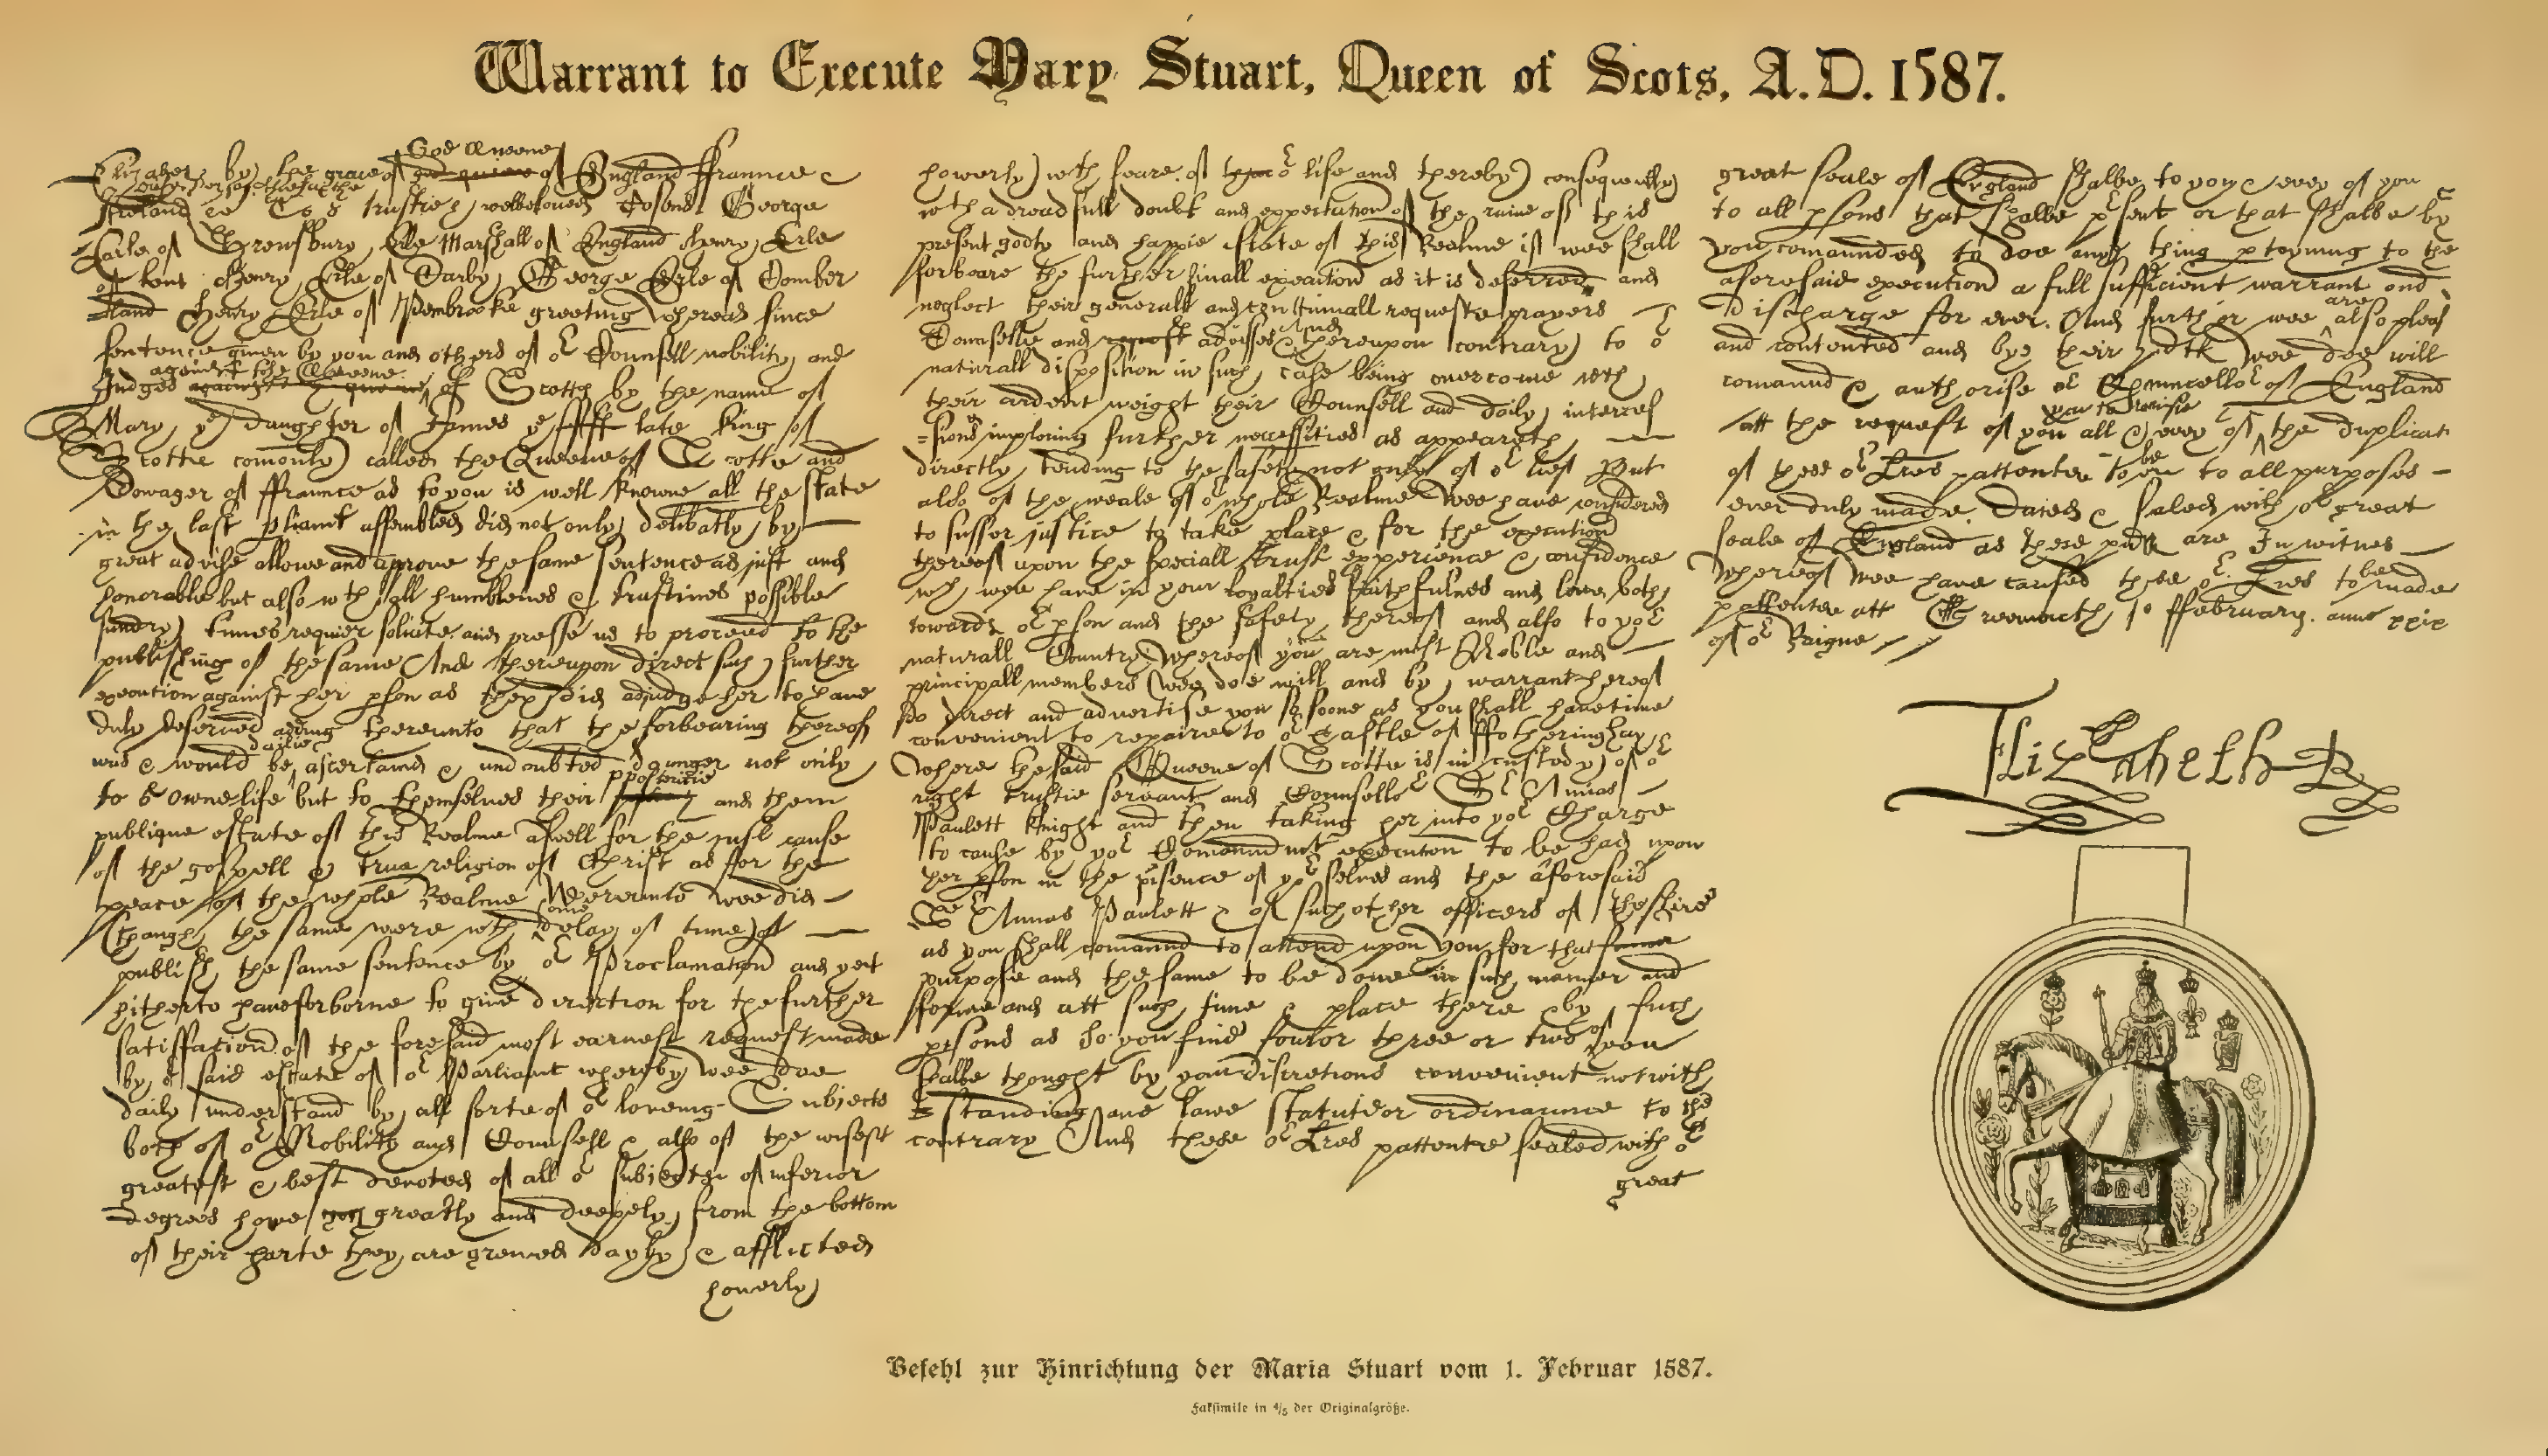 Warrant to Execute Mary Stuart, Queen of Scots, A.D. 1587.
God Queene
Elizabeth by the grace of god quiene of England ffraunce &
Ireland &c To o trustie & welbeloued Cosens George
Earle of Shrewsbury, Erle Marshall of England Henry, Erle
off kent Henry, Erle of Darby, George Erle of Comber
land Henry Erle of Pembrooke greeting Whereas since
sentence given by you and others of oʳ Counsell nobility, and
against the Queene
Judges against quene of Scotts by the name of
Mary, yᵉ daughter of James yᵉ fifft late King of
Scotte comonly called the Queene of Scotte and
Dowager of ffraunce as to you is well knowne all the state
in the last pliamt assembled did not only delibatly, by
great advise allowe and aprove the same sentence as just and
honorable but also wth all humblenes & trustines possible
sundry times requier solicite and presse us to proceed to the
publishing of the same And thereupon direct such further
execution against her pson as they did adjudge her to have
duly deserved adding thereunto that the forbearing thereof
dailie
was & would be ascertained & undoubted daunger not only
ppostiritie
to oʳ owne life but to themselues their and them
publique estate of this Realme aswell for the just cause
of the gospell & true religion of Christ as for the
peace of the whole Realme Wereunto wee did
some
though the same were with delay of time
publish the same sentence by oʳ Proclamation and yet
hitherto have forborne to give direction for the further
satisffation of the foresaid most earnest request made
by oʳ said estate of oʳ Parliamt whereby wee doe
daily understand by all sorte of oʳ loveing Subjects
both of oʳ Nobility and Counsell & also of the wisest
greatest & best devoted of all oʳ subjects of inferior
degrees howe greatly and deepely, from the bottom
of their harte they are greived dayly & afflicted
howerly
howerly with feare of oʳ life and thereby consequently
wth a dreadfull doubt and expectation of the ruine off this
present godly and happie state of this Realme if wee shall
forbeare the further finall execution as it is deferred and
neglect their generall and contiunall requeste prayers
And
Counselle and advisses & thereupon contrary to oʳ
naturall disposition in such case being overcome with
their ardent weight their Counsell and daily interces
=sions imploring further necessities as appeareth
directly tending to the safety not only of oʳ self But
also of the weale of oʳ whole Realme Wee have considered
to suffer justice to take place & for the execution
thereof upon the speciall trust experience & confidence
wh wee have in your loyalties faithfulnes and love both
towards oʳ pson and the safety thereof and also to yoʳ
naturall Country Whereof you are most Noble and
principall members wee doe will and by warrant hereof
do direct and advertise you so soone as you shall have time
convenient to repaire to oʳ Castle of ffotheringhay
Where the said Queene of Scotte is in custody of oʳ
right trustie servant and Counselloʳ Sʳ Amias
Paulett knight and then taking her into yoʳ Charge
to cause by yoʳ Comaundmt execution to be had upon
her pson in the pisence of yoʳ selves and the aforesaid
Sʳ Amias Paulett & of such other officers of the shire
as you shall comannd to attend upon you for that
purpose and the same to be done in such manner and
forme and att such time & place there by such
psons as to you find foutor three or two of you
shalbe thought by your discretions convenient notwith
=standing anie lawe statute or ordinaunce to the
contrary And these oʳ Lres pattentes sealed with oʳ
great
great seale of England shalbe to you & every of you
to all psons that shalbe psent or that shalbe by
you comaunded to doe any thing ptayning to the
aforesaid execution a full sufficient warrant and
are
discharge for ever. And further wee also pleas
and contented and bye their wee doe will
comannd & authorise oʳ Chauncelloʳ of England
att the request of you all & every of the duplicat
be
of these oʳ Lres pattentes to to all purposes
ever duly made. Dated & sealed with oʳ great
seale of England as these are In witnes
be
Whereof wee have caused these oʳ Lres to made
pattentes att Greenwich 1o ffebruary. anno xxix
of oʳ Raigne
Elizabeth R
Befehl zur Hinrichtung der Maria Stuart vom 1. Februar 1587.
Faksimile in 4/5 der Originalgröße.